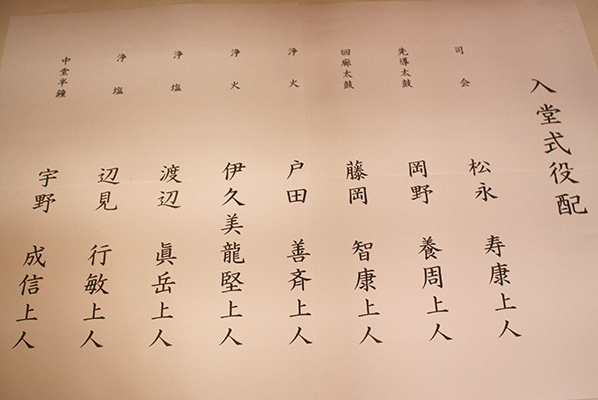 入堂式役配
司会 松永 寿康上人
先導太鼓 岡野 養周上人
回廊太鼓 藤岡 智康上人
浄火 戸田 善斉上人
浄火 伊久美龍堅上人
浄塩 渡辺 眞岳上人
浄塩 辺見 行敏上人
中堂半鐘 宇野 成信上人